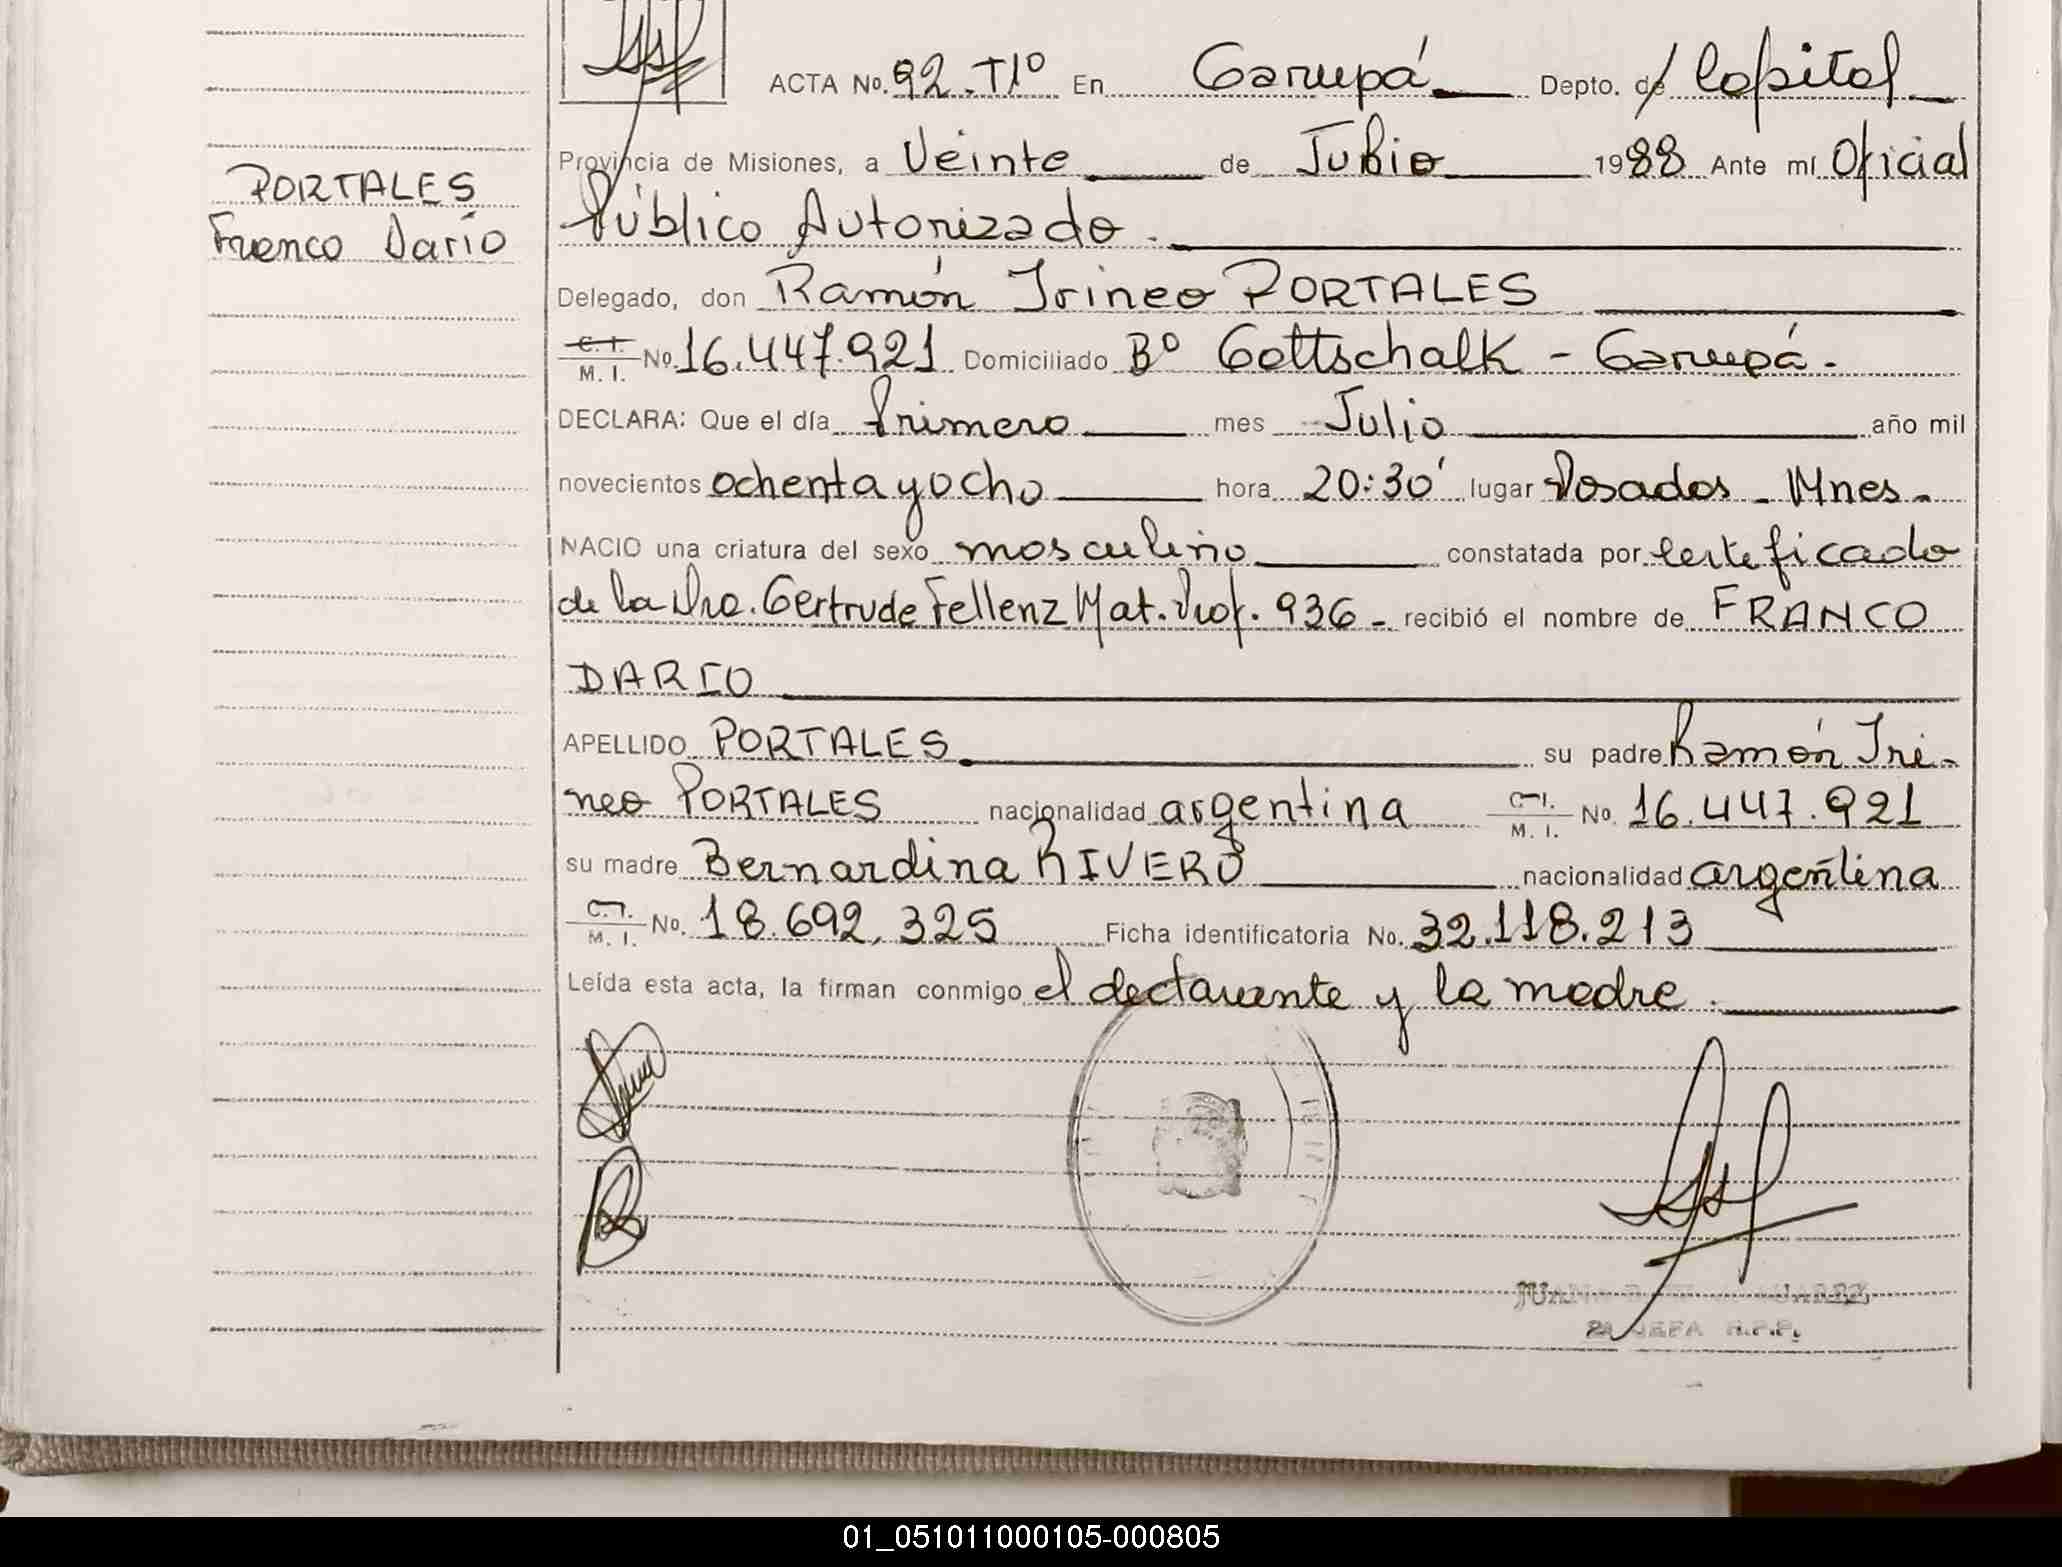 ACTA No. 92-T1º En Garupá Depto. de Capital
Provincia de Misiones, a Veinte de Julio 1988 Ante mí Oficial
Público Autorizado.
PORTALES
Franco Darío
Delegado, don Ramón Irineo PORTALES
C. I. M. I. No. 16.447.921 Domiciliado Bº Gottschalk - Garupá.
DECLARA: Que el día Primero mes Julio año mil
novecientos ochenta y ocho hora 20:30' lugar Posadas - Mnes.
NACIO una criatura del sexo masculino constatada por certificado
de la Dra. Gertrude Fellenz Mat. Prof. 936 - recibió el nombre de FRANCO
DARIO
APELLIDO PORTALES su padre Ramón Iri-
neo PORTALES nacionalidad argentina C. I. M. I. No. 16.447.921
su madre Bernardina RIVERO nacionalidad argentina
C. I. M. I. No. 18.692.325 Ficha identificatoria No. 32.118.213
Leída esta acta, la firman conmigo el declarante y la madre.
JEFA R.P.P.
01_051011000105-000805